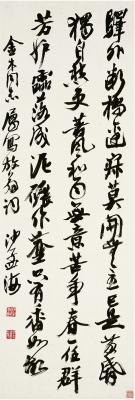 驛外斷橋邊寂莫開無主已是黃昏
獨自愁更著風和雨無意苦爭春一任群
芳妒零落成泥碾作塵只有香如故
金木同志屬寫放翁詞 沙孟海